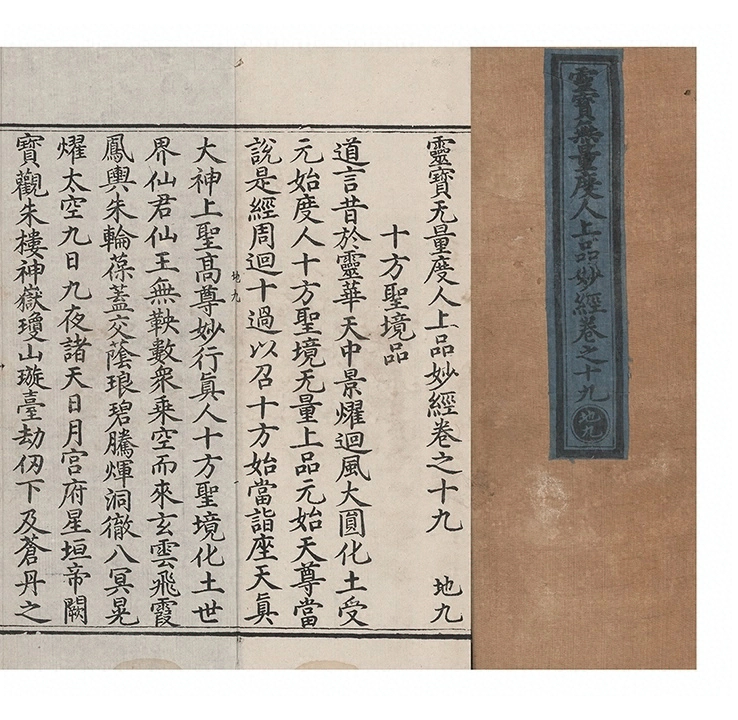 靈寶無量度人上品妙經卷之十九
地九
靈寶无量度人上品妙經卷之十九 地九
十方聖境品
道言昔於靈華天中景燿迴風大圓化土受
元始度人十方聖境无量上品元始天尊當
說是經周迴十過以召十方始當詣座天真
地九
大神上聖高尊妙行真人十方聖境化土世
界仙君仙王無鞅數衆乘空而來玄雲飛霞
鳳輿朱輪葆蓋交蔭琅碧騰煇洞徹八冥晃
燿太空九日九夜諸天日月宮府星垣帝闕
寶觀朱樓神嶽瓊山璇臺劫仭下及蒼丹之